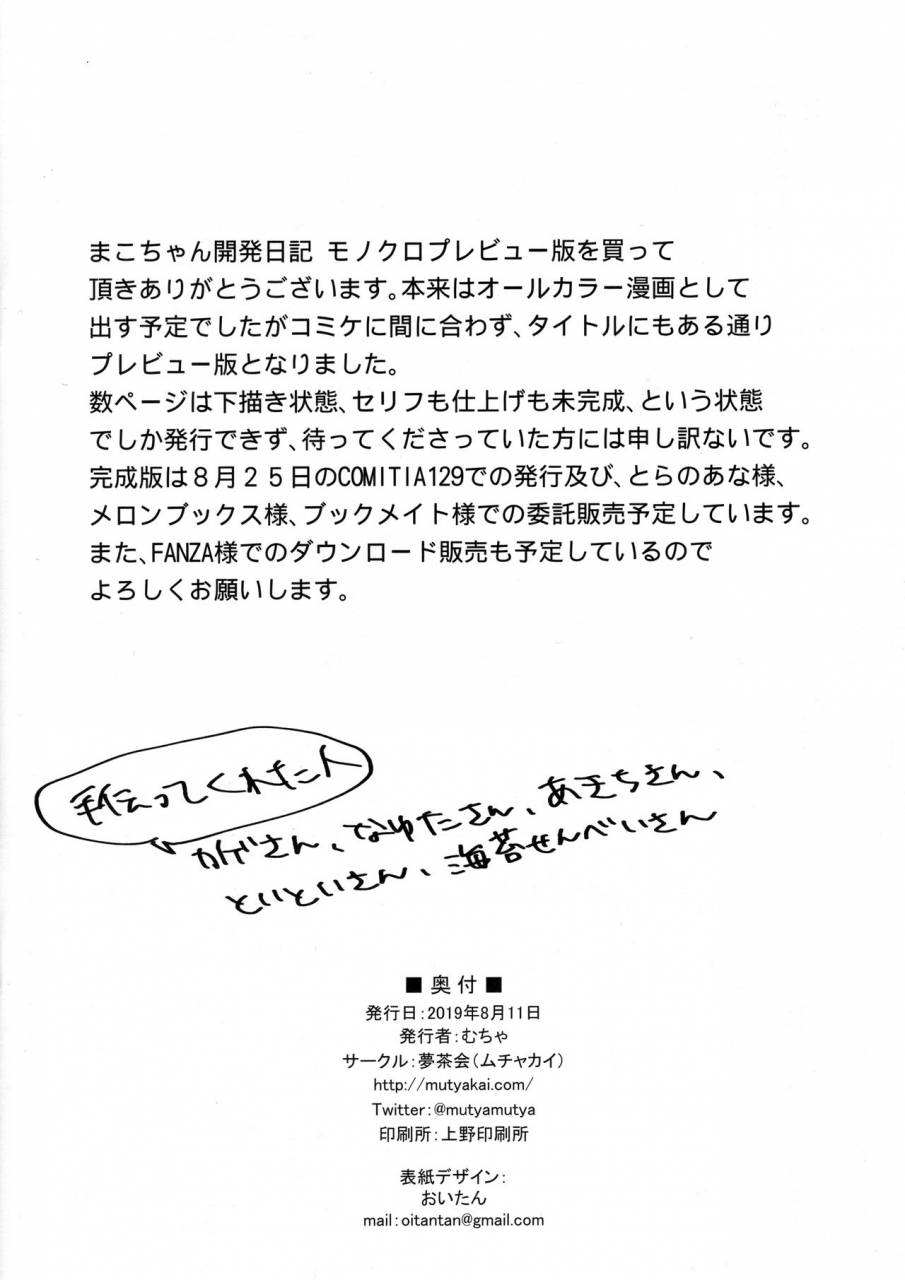 まこちゃん開発日記 モノクロプレビュー版を買って
頂きありがとうございます。本来はオールカラー漫画として
出す予定でしたがコミケに間に合わず、タイトルにもある通り
プレビュー版となりました。
数ページは下描き状態、セリフも仕上げも未完成、という状態
でしか発行できず、待ってくださっていた方には申し訳ないです。
完成版は８月２５日のCOMITIA129での発行及び、とらのあな様、
メロンブックス様、ブックメイト様での委託販売予定しています。
また、FANZA様でのダウンロード販売も予定しているので
よろしくお願いします。
手伝ってくれた人
かげさん、なゆたさん、あきちさん、
といといさん、海苔せんべいさん
■ 奥付 ■
発行日：2019年8月11日
発行者：むちゃ
サークル：夢茶会（ムチャカイ）
http://mutyakai.com/
Twitter：@mutyamutya
印刷所：上野印刷所
表紙デザイン：
おいたん
mail：oitantan@gmail.com